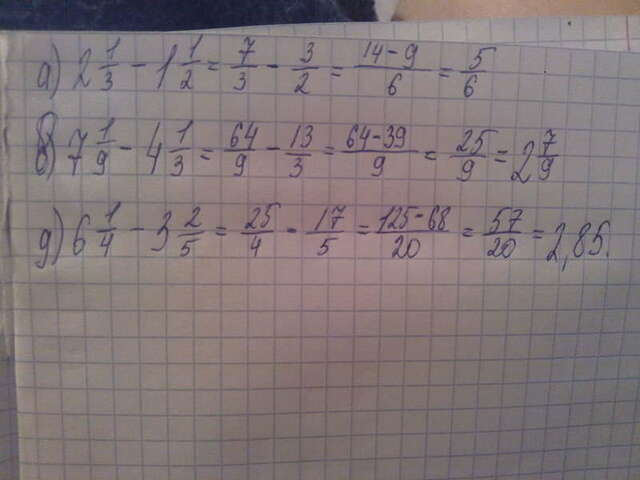 а) 2 1/3 - 1 1/2 = 7/3 - 3/2 = (14-9)/6 = 5/6
в) 7 1/9 - 4 1/3 = 64/9 - 13/3 = (64-39)/9 = 25/9 = 2 7/9
д) 6 1/4 - 3 2/5 = 25/4 - 17/5 = (125-68)/20 = 57/20 = 2,85.